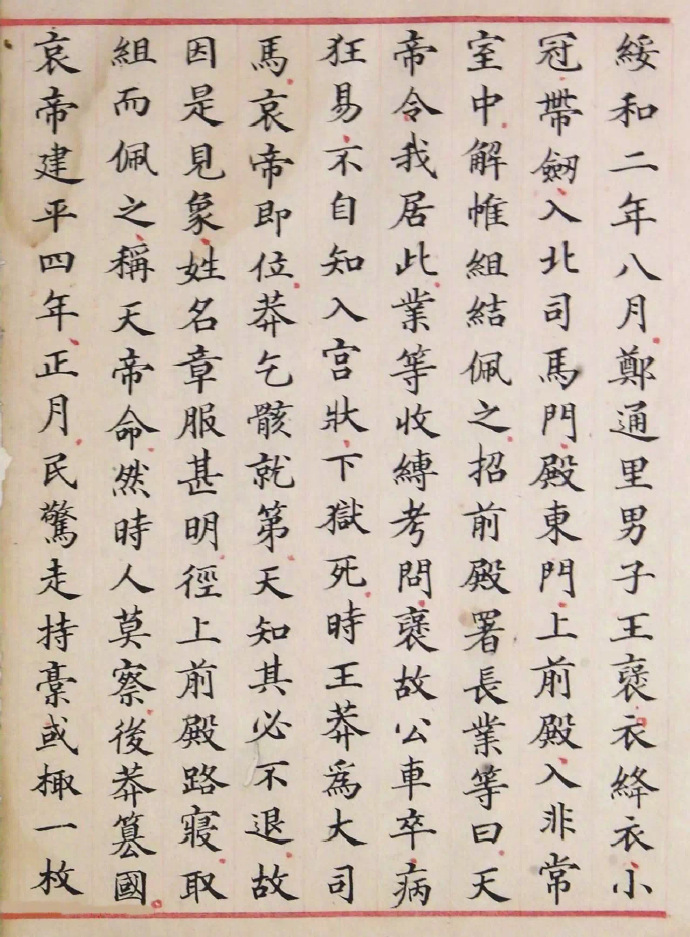 綏和二年八月鄭通里男子王襃衣絳衣小
冠帶劒入北司馬門殿東門上前殿入非常
室中解帷組結佩之招前殿署長業等曰天
帝令我居此業等收縛考問襃故公車卒病
狂易不自知入宮狀下獄死時王莽爲大司
馬哀帝即位莽乞骸就第天知其必不退故
因是見象姓名章服甚明徑上前殿路寢取
組而佩之稱天帝命然時人莫察後莽簒國
哀帝建平四年正月民驚走持稾或棷一枚